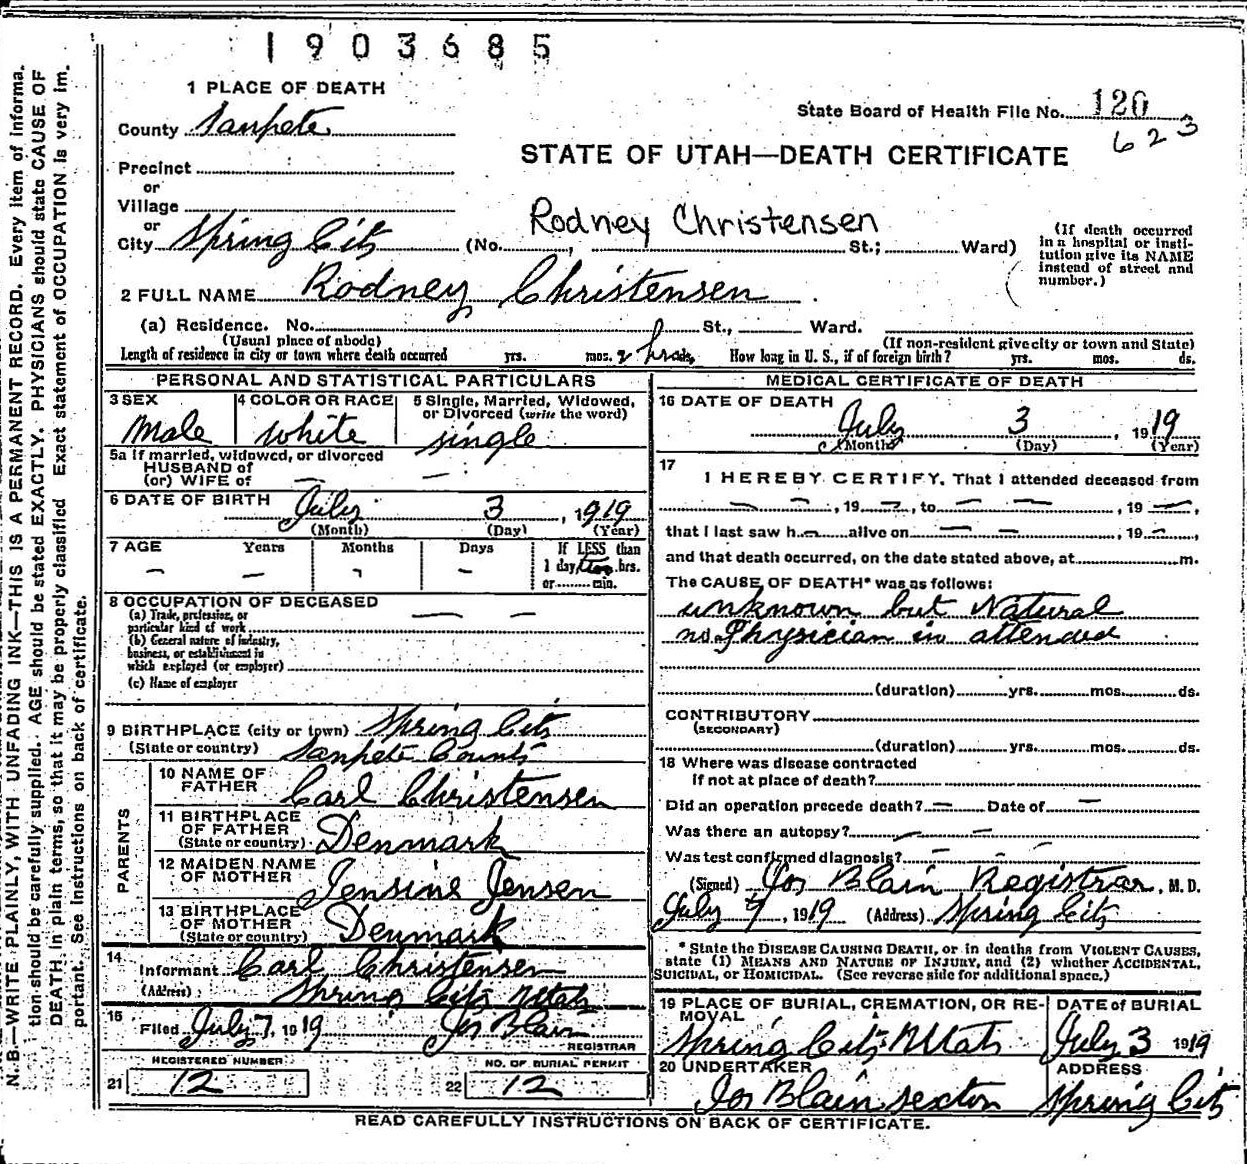 1903685
1 PLACE OF DEATH
State Board of Health File No. 120
County Sanpete
623
STATE OF UTAH—DEATH CERTIFICATE
Precinct
or
Village
or
Rodney Christensen
City Spring City (No. , St.; Ward)
(If death occurred in a hospital or insti-
tution give its NAME
instead of street and
number.)
2 FULL NAME Rodney Christensen
(a) Residence. No. St., Ward.
(Usual place of abode) (If non-resident give city or town and State)
Length of residence in city or town where death occurred yrs. mos. 2 hrs ds. How long in U. S., if of foreign birth? yrs. mos. ds.
PERSONAL AND STATISTICAL PARTICULARS
3 SEX 4 COLOR OR RACE 5 Single, Married, Widowed,
or Divorced (write the word)
Male white single
5a If married, widowed, or divorced
HUSBAND of
(or) WIFE of —
6 DATE OF BIRTH July 3, 1919
(Month) (Day) (Year)
7 AGE Years Months Days If LESS than
— — — — 1 day, two hrs.
or min.
8 OCCUPATION OF DECEASED
(a) Trade, profession, or
particular kind of work — — —
(b) General nature of industry,
business, or establishment in
which employed (or employer)
(c) Name of employer
9 BIRTHPLACE (city or town) Spring City
(State or country) Sanpete County
PARENTS
10 NAME OF
FATHER Carl Christensen
11 BIRTHPLACE
OF FATHER
(State or country) Denmark
12 MAIDEN NAME
OF MOTHER Jensine Jensen
13 BIRTHPLACE
OF MOTHER
(State or country) Denmark
14
Informant Carl Christensen
(Address) Spring City Utah
15
Filed July 7, 1919 Jos Blain
REGISTRAR
REGISTERED NUMBER NO. OF BURIAL PERMIT
21 12 22 12
MEDICAL CERTIFICATE OF DEATH
16 DATE OF DEATH
July 3, 1919
(Month) (Day) (Year)
17
I HEREBY CERTIFY, That I attended deceased from
— —, 19 —, to — — —, 19 —,
that I last saw h— alive on — —, 19 —,
and that death occurred, on the date stated above, at m.
The CAUSE OF DEATH* was as follows:
unknown but Natural
no Physician in attended
(duration) yrs. mos. ds.
CONTRIBUTORY
(SECONDARY)
(duration) yrs. mos. ds.
18 Where was disease contracted
if not at place of death?
Did an operation precede death? — Date of —
Was there an autopsy? — —
Was test confirmed diagnosis? — — —
(Signed) Jos Blain Registrar, M. D.
July 7, 1919 (Address) Spring City
* State the DISEASE CAUSING DEATH, or in deaths from VIOLENT CAUSES,
state (1) MEANS AND NATURE OF INJURY, and (2) whether ACCIDENTAL,
SUICIDAL, or HOMICIDAL. (See reverse side for additional space.)
19 PLACE OF BURIAL, CREMATION, OR RE-
MOVAL DATE of BURIAL
Spring City Utah July 3 1919
20 UNDERTAKER ADDRESS
Jos Blain sexton Spring City
READ CAREFULLY INSTRUCTIONS ON BACK OF CERTIFICATE.
N.B.—WRITE PLAINLY, WITH UNFADING INK—THIS IS A PERMANENT RECORD. Every item of informa-
tion should be carefully supplied. AGE should be stated EXACTLY. PHYSICIANS should state CAUSE OF
DEATH in plain terms, so that it may be properly classified. Exact statement of OCCUPATION is very im-
portant. See instructions on back of certificate.